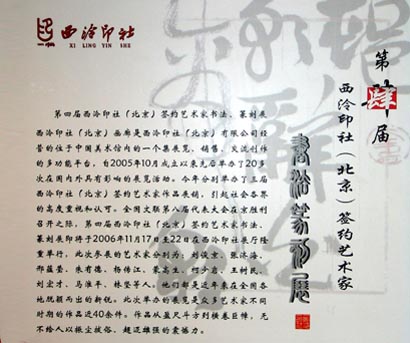 西泠印社
XI LING YIN SHE
第肆届
西泠印社（北京）签约艺术家
书法篆刻展
第四届西泠印社（北京）签约艺术家书法、篆刻展
西泠印社（北京）画廊是西泠印社（北京）有限公司经
营的位于中国美术馆内的一个集展览、销售、交流创作
的多功能平台，自2005年10月成立以来先后举办了20多
次在国内外具有影响的展览活动。今年分别举办了三届
西泠印社（北京）签约艺术家作品展销，引起社会各界
的高度重视和认可。全国文联第八届代表大会在京胜利
召开之际，第四届西泠印社（北京）签约艺术家书法、
篆刻展即将于2006年11月17日至22日在西泠印社展厅隆
重举行，此次参展的艺术家分别为：刘设京、张济海、
邢蕴莹、朱有德、杨炳江、蒙高生、柯少云、王树民、
刘宏才、马淮平、林莹等人。他们都是近年来在全国各
地脱颖而出的新锐。此次举办的展览是众多艺术家不同
时期的作品近40余件。作品从盈尺斗方到横卷巨幛，无
不给人以振尘拔俗、超迈雄强的震憾力。